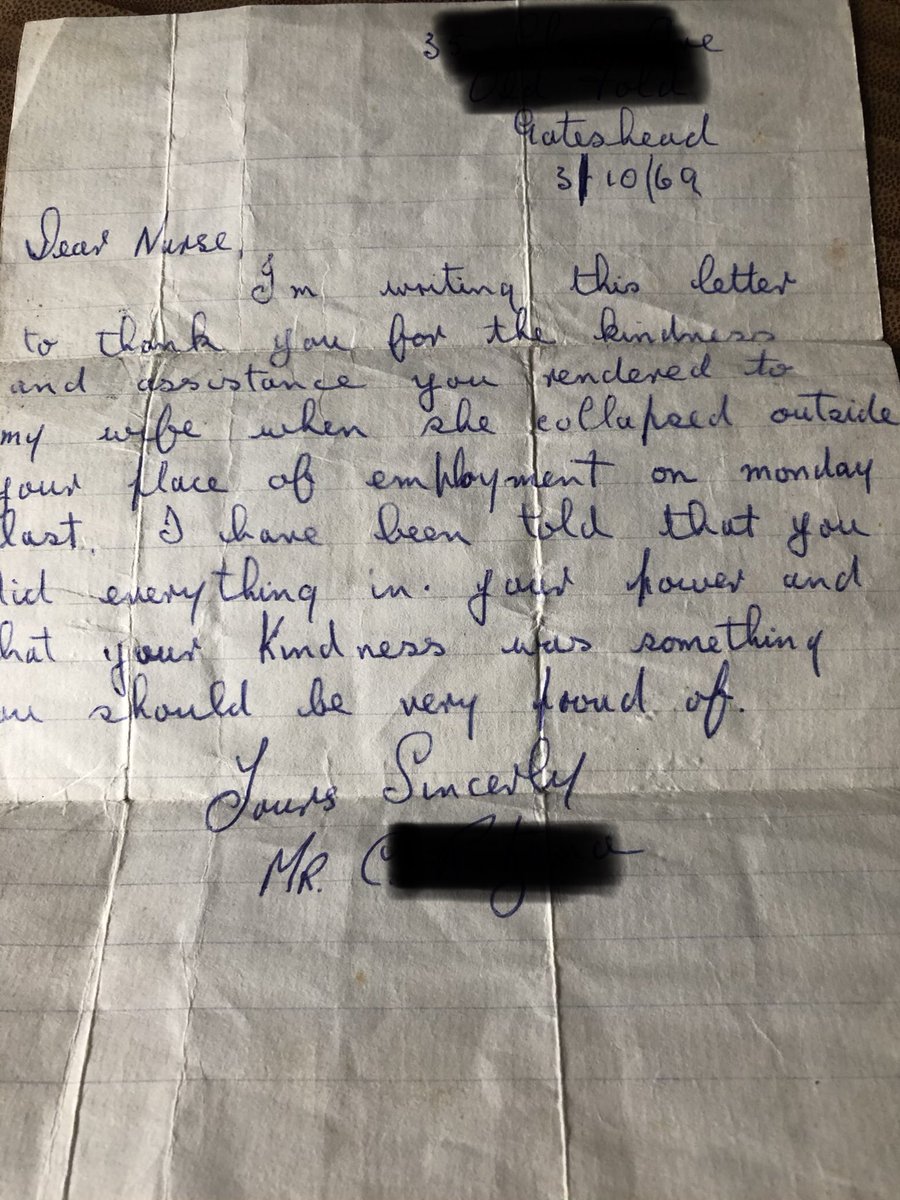 Gateshead
3/10/69
Dear Nurse,
I'm writing this letter
to thank you for the kindness
and assistance you rendered to
my wife when she collapsed outside
your place of employment on monday
last. I have been told that you
did everything in. your power and
hat your Kindness was something
ou should be very proud of.
Yours Sincerly
MR. C